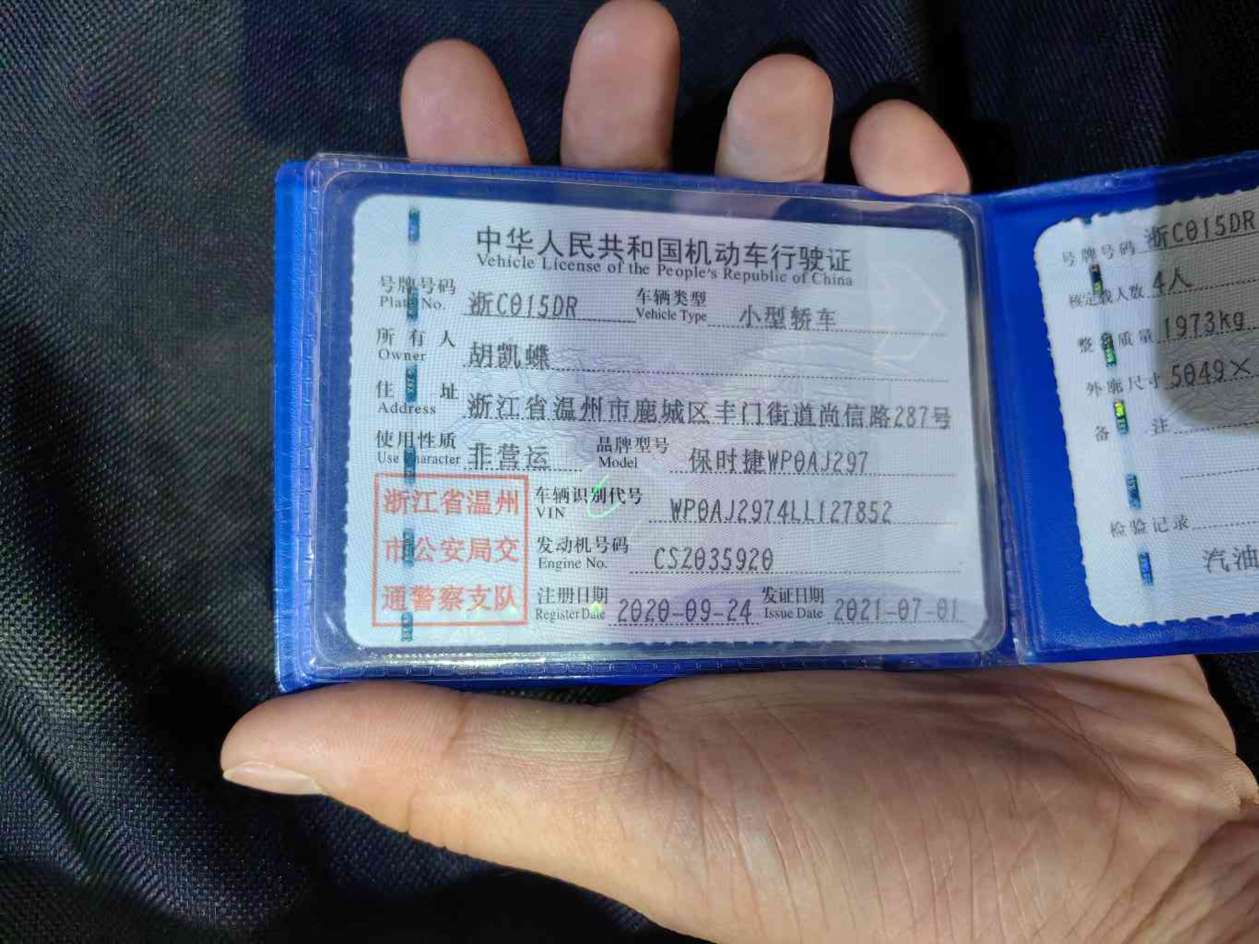 中华人民共和国机动车行驶证
Vehicle License of the People's Republic of China
号牌号码 浙C015DR 车辆类型 小型轿车
Plate No. Vehicle Type
所有人 胡凯蝶
Owner
住址 浙江省温州市鹿城区丰门街道尚信路287号
Address
使用性质 非营运 品牌型号 保时捷WP0AJ297
Use Character Model
浙江省温州
市公安局交
通警察支队
车辆识别代号 WP0AJ2974LL127852
VIN
发动机号码 CSZ035920
Engine No.
注册日期 2020-09-24 发证日期 2021-07-01
Register Date Issue Date
号牌号码 浙C015DR
核定载人数 4人
整备质量 1973kg
外廓尺寸 5049×
备注
检验记录
汽油